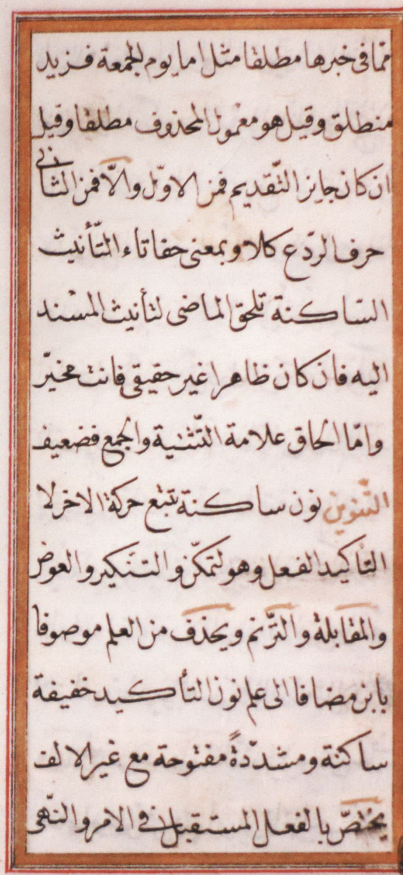 ممّا فى خبرها مطلقا مثل اما يوم الجمعة فزيد
منطلق وقيل هو معمول المحذوف مطلقا وقيل
ان كان جايز التّقديم فمن الاوّل والاّ فمن الثّانى
حرف الردّع كلا وبمعنى حقا تاء التّأنيث
السّاكنة تلحق الماضى لتأنيث المسند
اليه فان كان ظاهرا غير حقيقى فانت مخيّر
وامّا الحاق علامة التّثنية والجمع فضعيف
التّنوين نون ساكنة تتبع حركة الاخر لا
التاكيد الفعل وهو لتمكّن والتنكير والعوض
والمقابلة والترّنم ويحذف من العلم موصوفا
بابن مضافا الى علم نون التأكيد خفيفة
ساكنة ومشدّدةً مفتوحة مع غير الالف
يختصّ بالفعل المستقبل فى الامر والنّهى